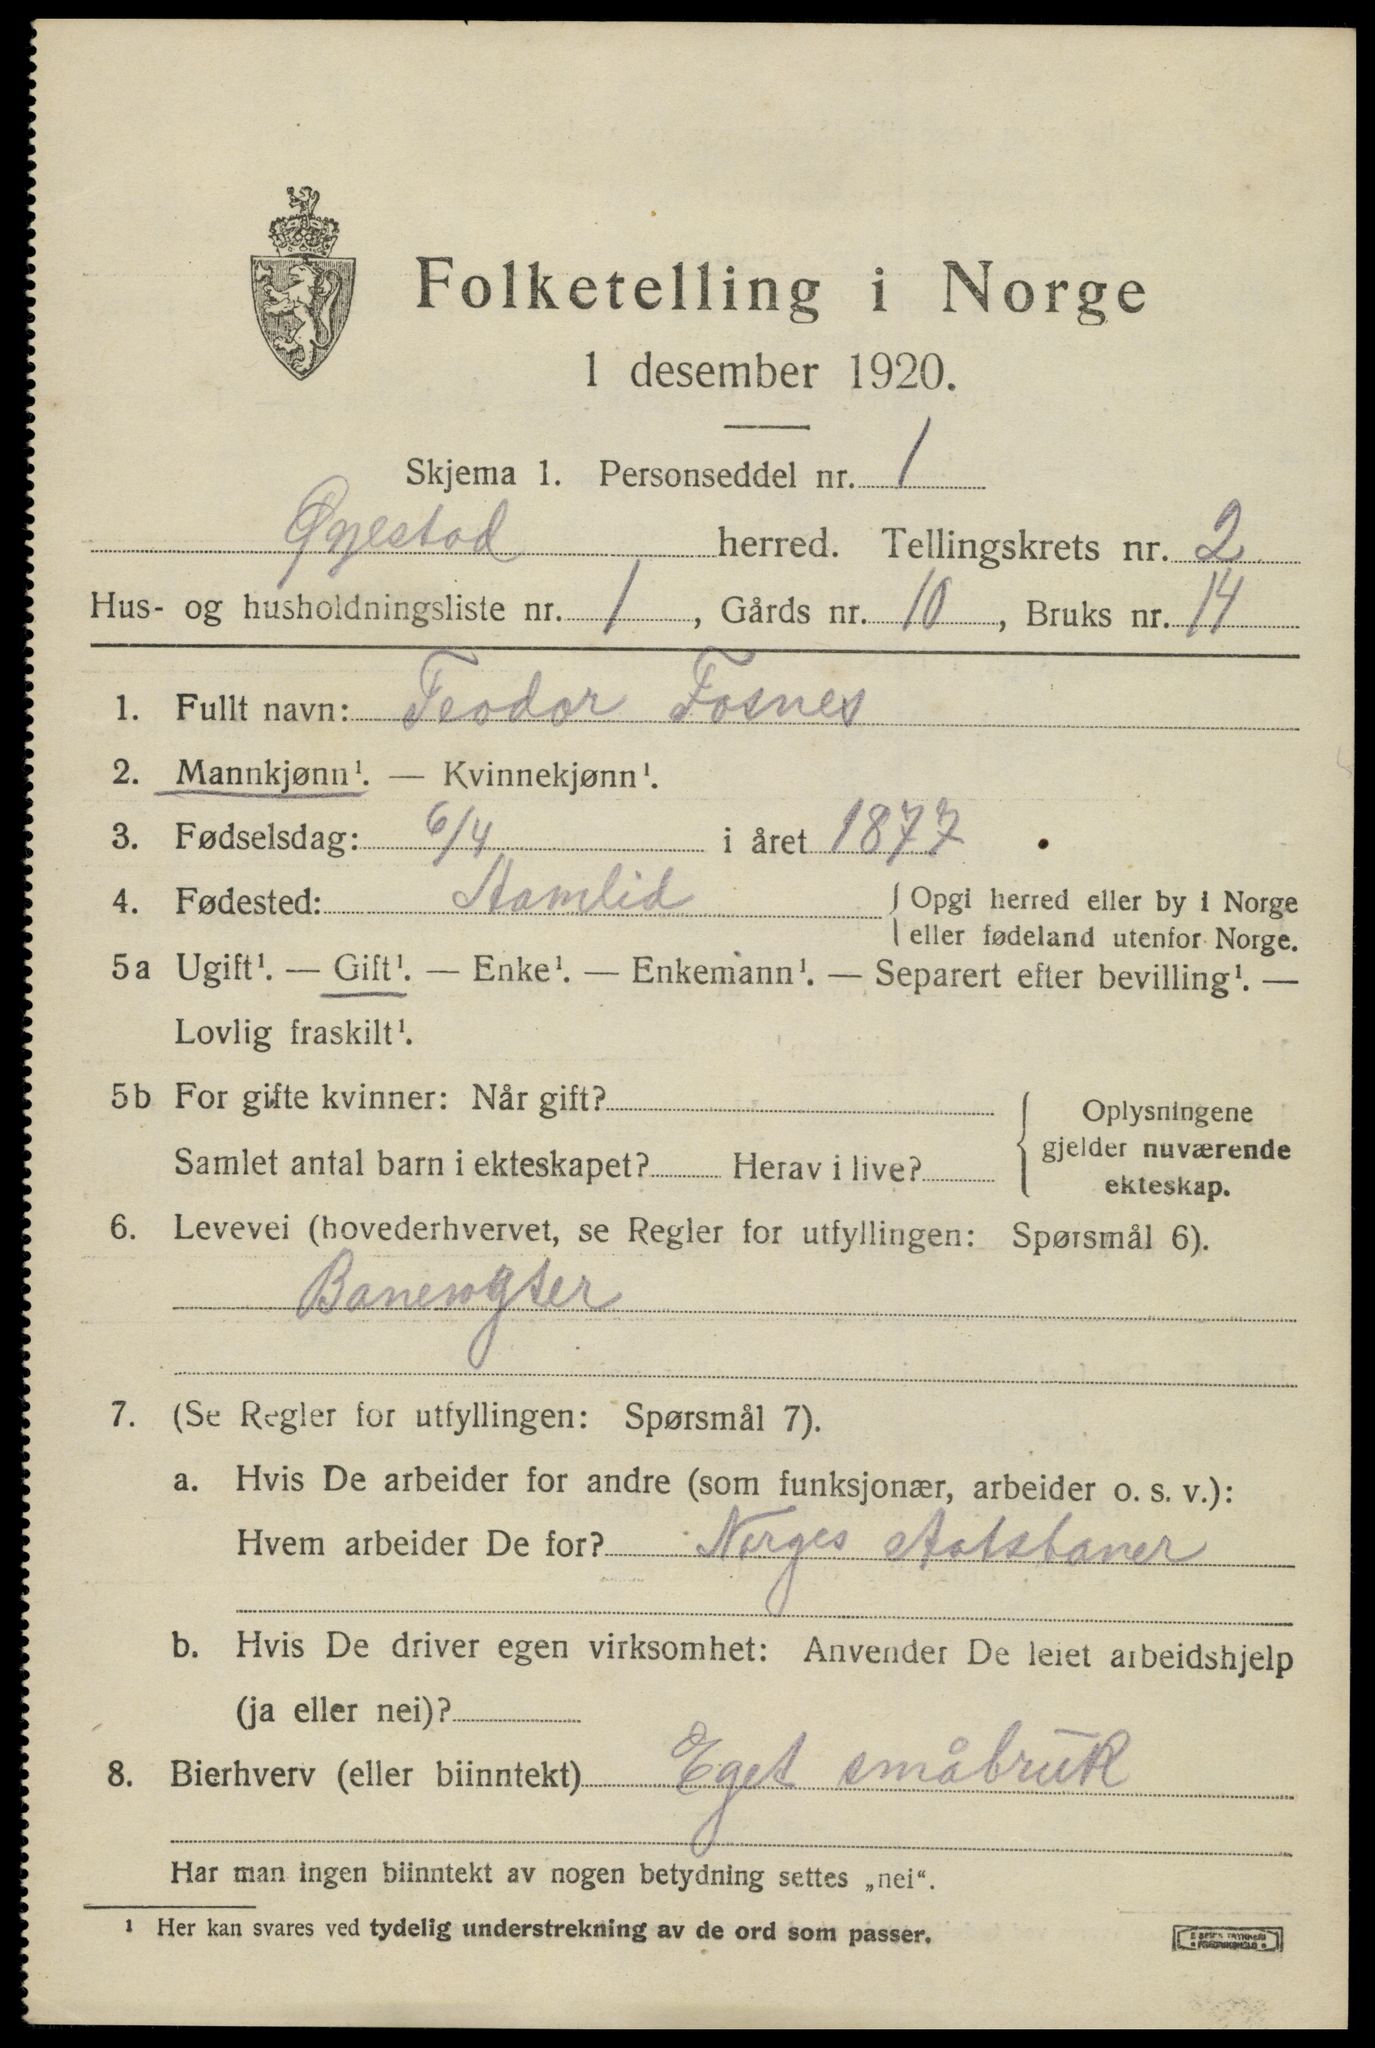 Folketelling i Norge
1 desember 1920.
Skjema 1. Personseddel nr. 1
Øyestad herred. Tellingskrets nr. 2
Hus- og husholdningsliste nr. 1, Gårds nr. 10, Bruks nr. 14
1. Fullt navn: Teodor Fosnes
2. Mannkjønn¹. — Kvinnekjønn¹.
3. Fødselsdag: 6/4 i året 1877
4. Fødested: Hamlid { Opgi herred eller by i Norge
eller fødeland utenfor Norge.
5a Ugift¹. — Gift¹. — Enke¹. — Enkemann¹. — Separert efter bevilling¹. —
Lovlig fraskilt¹.
5b For gifte kvinner: Når gift?
Samlet antal barn i ekteskapet? Herav i live?
Oplysningene
gjelder nuværende
ekteskap.
6. Levevei (hovederhvervet, se Regler for utfyllingen: Spørsmål 6).
Banevogter
7. (Se Regler for utfyllingen: Spørsmål 7).
a. Hvis De arbeider for andre (som funksjonær, arbeider o. s. v.):
Hvem arbeider De for? Norges statsbaner
b. Hvis De driver egen virksomhet: Anvender De leiet arbeidshjelp
(ja eller nei)?
8. Bierhverv (eller biinntekt) Eget småbruk
Har man ingen biinntekt av nogen betydning settes „nei“.
¹ Her kan svares ved tydelig understrekning av de ord som passer.